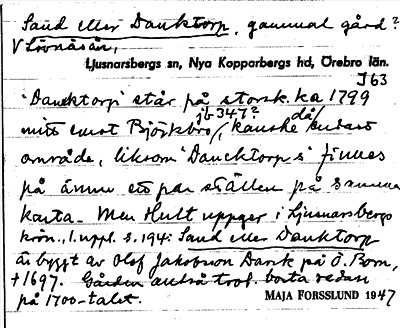 Sand eller Danktorp, gammal gård?
V Lövnäsån,
Ljusnarsbergs sn, Nya Kopparbergs hd, Örebro län.
J 63
"Dancktorp" står på storsk. ka 1799
jb 347? då
mitt emot Björkbro, kanske endast
område, liksom "Dancktorp s" finnes
på ännu ett par ställen på samma
karta. Men Hult uppger i Ljusnarsbergs
krön., 1. uppl. s. 194: Sand eller Danktorp
är byggt av Olof Jakobsson Dank på Ö. Born,
† 1697. Gården antså trol. borta redan
på 1700-talet.
MAJA FORSSLUND 1947